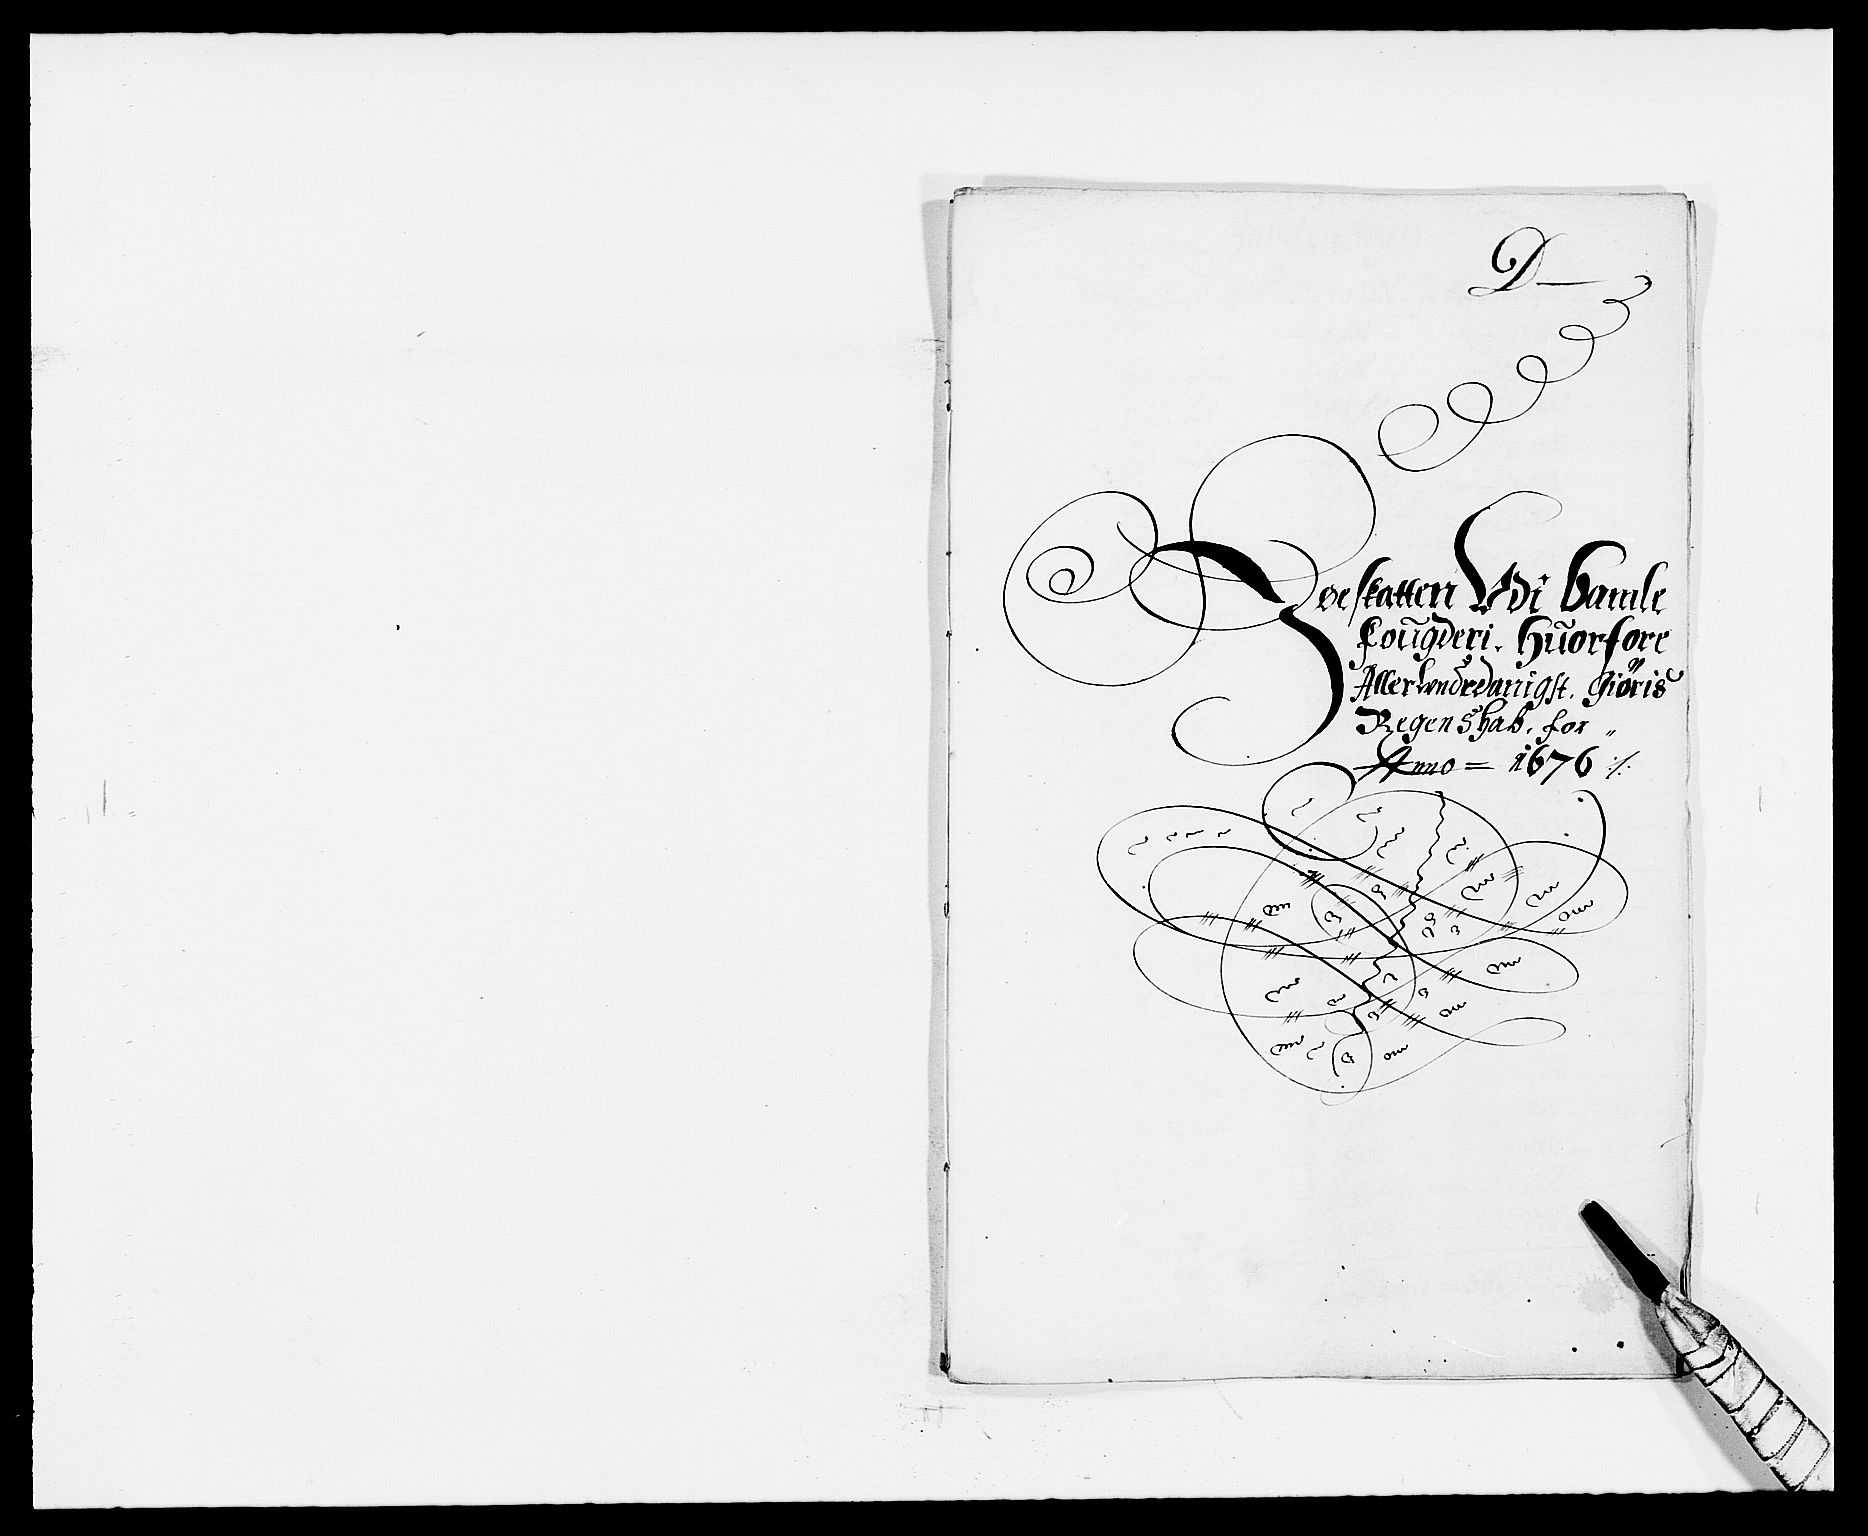 D
Joeskatten Vdi Bamle
Fougderi. Huorfore
Allerundredanigst. Giöris
Regenshab. for „
Anno = 1676 ./.